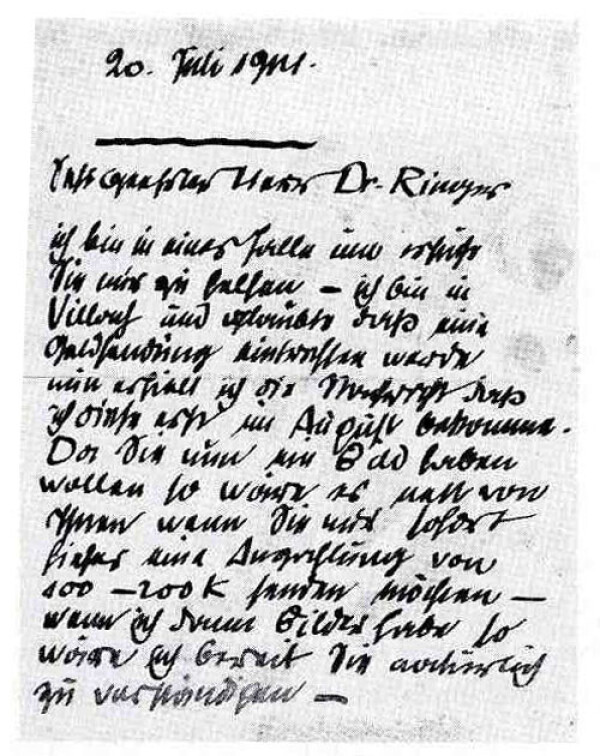 20. Juli 1911.
Sehr geehrter Herr Dr. Ringer
ich bin in einer Falle und ersuche
Sie mir zu helfen – ich bin in
Villach und glaubte daß eine
Geldsendung eintreffen werde
nun erhielt ich die Nachricht daß
ich diese erst im August bekomme.
Da Sie nun ein Bild haben
wollen so wäre es nett von
Ihnen wenn Sie mir sofort
hieher eine Anzahlung von
100 – 200 K senden möchten –
wenn ich dann Bilder habe so
wäre ich bereit Sie natürlich
zu verständigen –